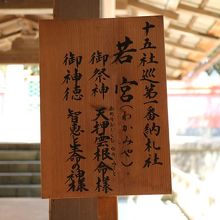 十五社巡第一番納札社
若宮(わかみや)
御祭神 天押雲根命様
御神徳 智恵と生命の神様